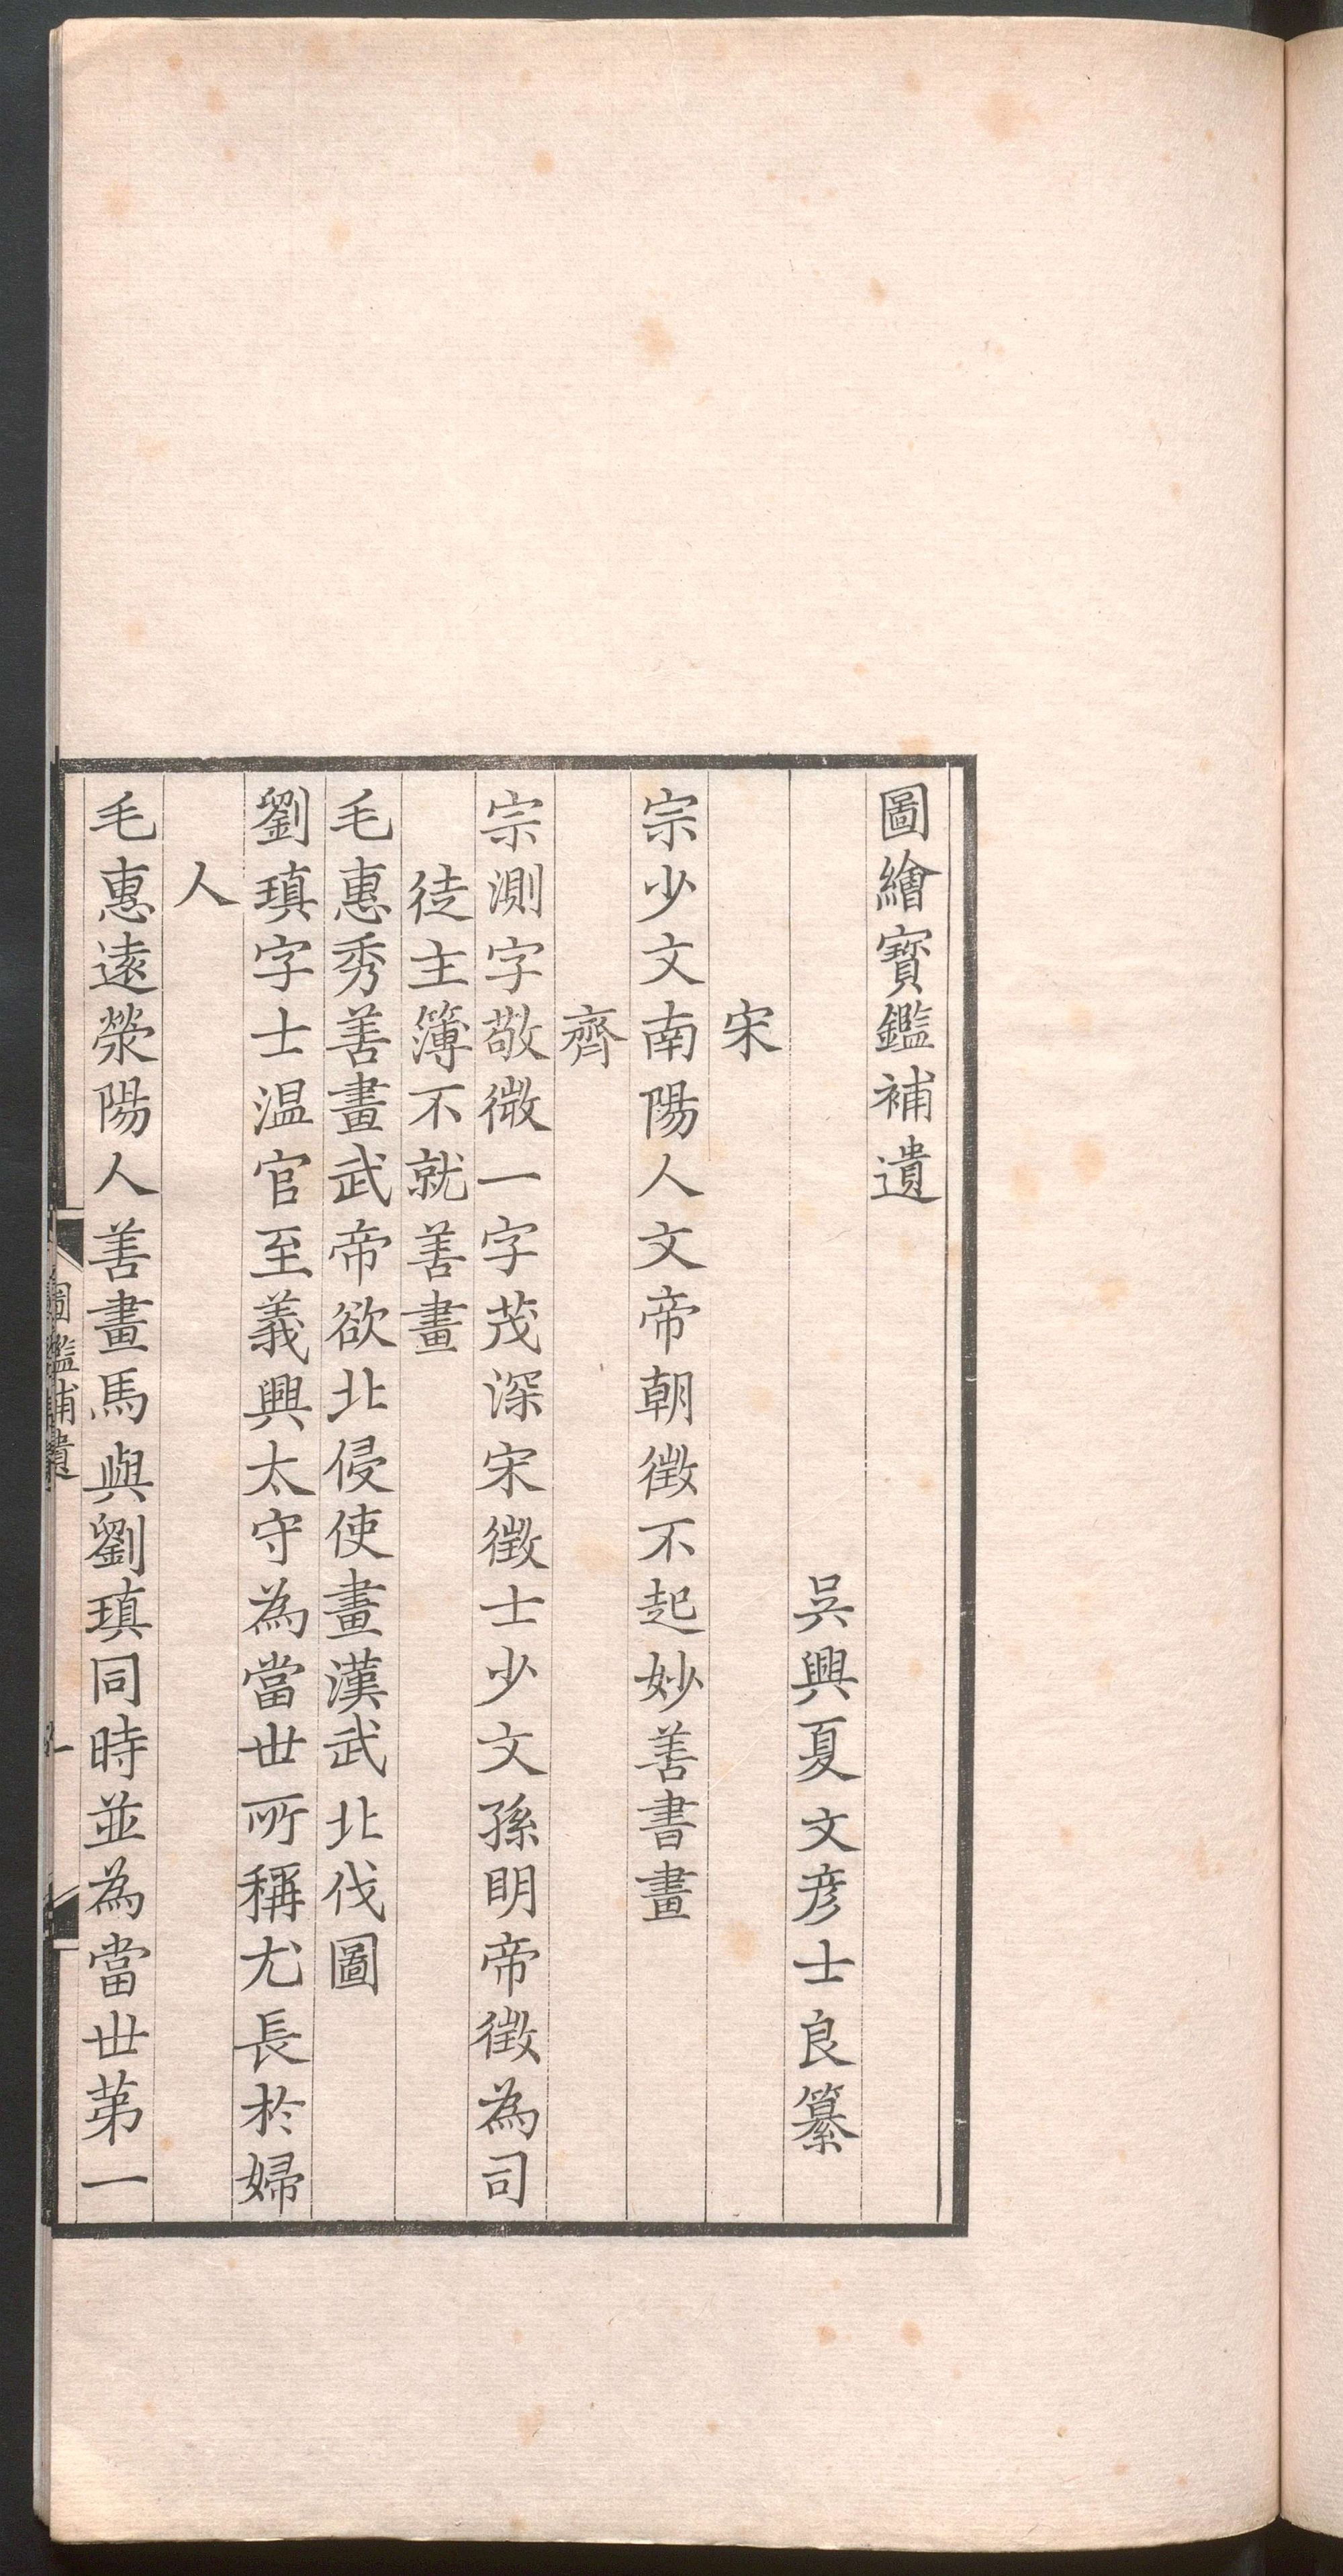 圖繪寳鑑補遺
吳興夏文彦士良纂
宋
宗少文南陽人文帝朝徵不起妙善書畫
齊
宗測字敬微一字茂深宋徵士少文孫明帝徵為司
徒主簿不就善畫
毛惠秀善畫武帝欲北侵使畫漢武北伐圖
劉瑱字士温官至義興太守為當世所稱尤長於婦
人
毛惠遠滎陽人善畫馬與劉瑱同時並為當世苐一
圖鑑補遺
一